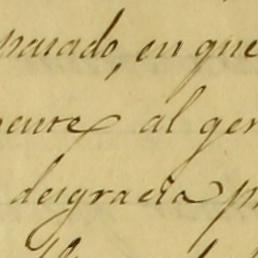 parado, en que
mente al gen
desgracia p